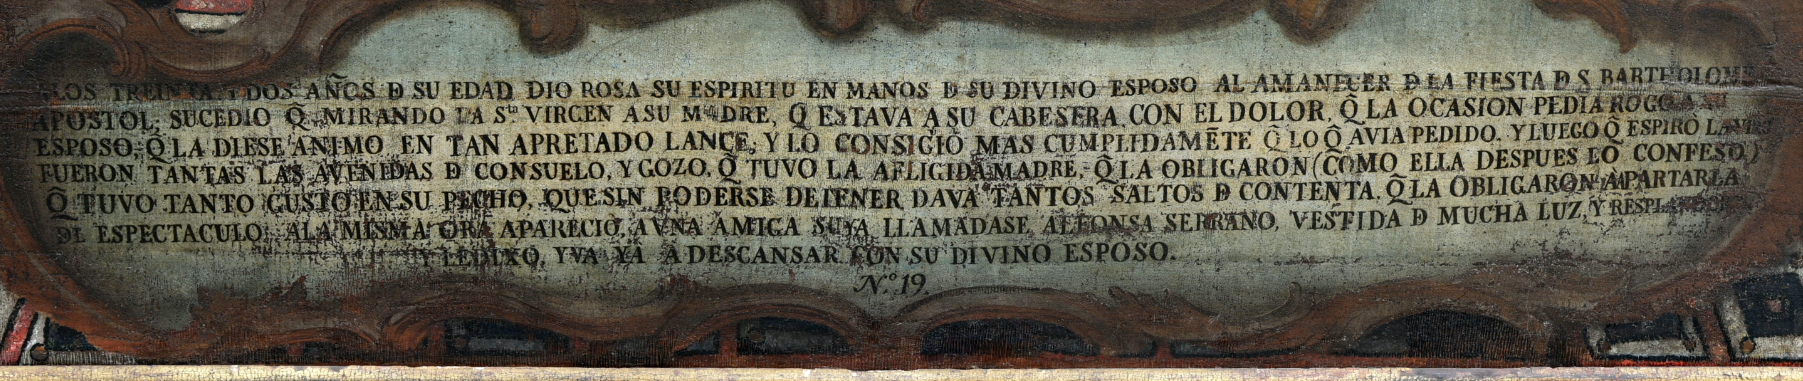 LOS TREINTA Y DOS AÑOS D SU EDAD DIO ROSA SU ESPIRITU EN MANOS D SU DIVINO ESPOSO AL AMANECER D LA FIESTA D S. BARTHOLOME
APOSTOL; SUCEDIO Q̃ MIRANDO LA Sta VIRGEN ASU MADRE, Q̃ ESTAVA A SU CABESERA CON EL DOLOR, Q̃ LA OCASION PEDIA ROGO A SU
ESPOSO, Q̃ LA DIESE ANIMO EN TAN APRETADO LANCE, Y LO CONSIGIO MAS CUMPLIDAMẼTE Q̃ LO Q̃ AVIA PEDIDO. Y LUEGO Q̃ ESPIRÓ LA
FUERON TANTAS LAS AVENIDAS D CONSUELO, Y GOZO, Q̃ TUVO LA AFLIGIDA MADRE, Q̃ LA OBLIGARON (COMO ELLA DESPUES LO CONFESO)
Q̃ TUVO TANTO GUSTO EN SU PECHO, QUE SIN PODERSE DETENER DAVA TANTOS SALTOS D CONTENTA, Q̃ LA OBLIGARON APARTARLA
DL ESPECTACULO. ALA MISMA ORA APARECIO, A VNA AMIGA SUYA LLAMADASE ALFONSA SERRANO, VESTIDA D MUCHA LUZ, Y
Y LEDIXO, YVA YA A DESCANSAR CON SU DIVINO ESPOSO.
N.º 19.